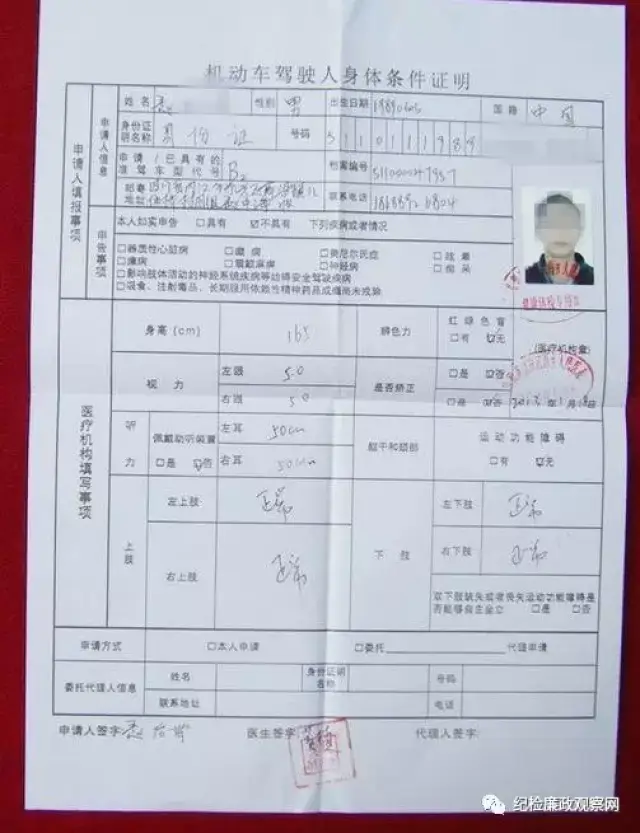 机动车驾驶人身体条件证明
申请人填报事项
申请人信息
姓名 性别 男 出生日期 国籍 中国
身份证明名称 身份证 号码 511011198
申请/已具有的准驾车型代号 B2 档案编号
邮寄地址 联系电话
申告事项
本人如实申告 □具有 ☑不具有 下列疾病或者情况
□器质性心脏病 □癫痫 □美尼尔氏症 □眩晕
□癔病 □震颤麻痹 □神经病 □痴呆
□影响肢体活动的神经系统疾病等妨碍安全驾驶疾病
□吸食、注射毒品、长期服用依赖性精神药品成瘾尚未戒除
医疗机构填写事项
身高(cm) 165 辨色力 红绿色盲 □有 ☑无
(医疗机构章)
视力 左眼 5.0 是否矫正 □是 ☑否
右眼 5.0 □是 ☑否
听力 佩戴助听装置 □是 ☑否 左耳 50cm 躯干和颈部 运动功能障碍
右耳 50cm □有 ☑无
上肢 左上肢 正常 下肢 左下肢 正常
右上肢 正常 右下肢 正常
双下肢缺失或者丧失运动功能障碍是否能够自主坐立 □是 □否
申请方式 □本人申请 □委托 代理申请
委托代理人信息 姓名 身份证明名称 号码
联系地址 电话
申请人签字: 医生签字: 代理人签字:
纪检廉政观察网